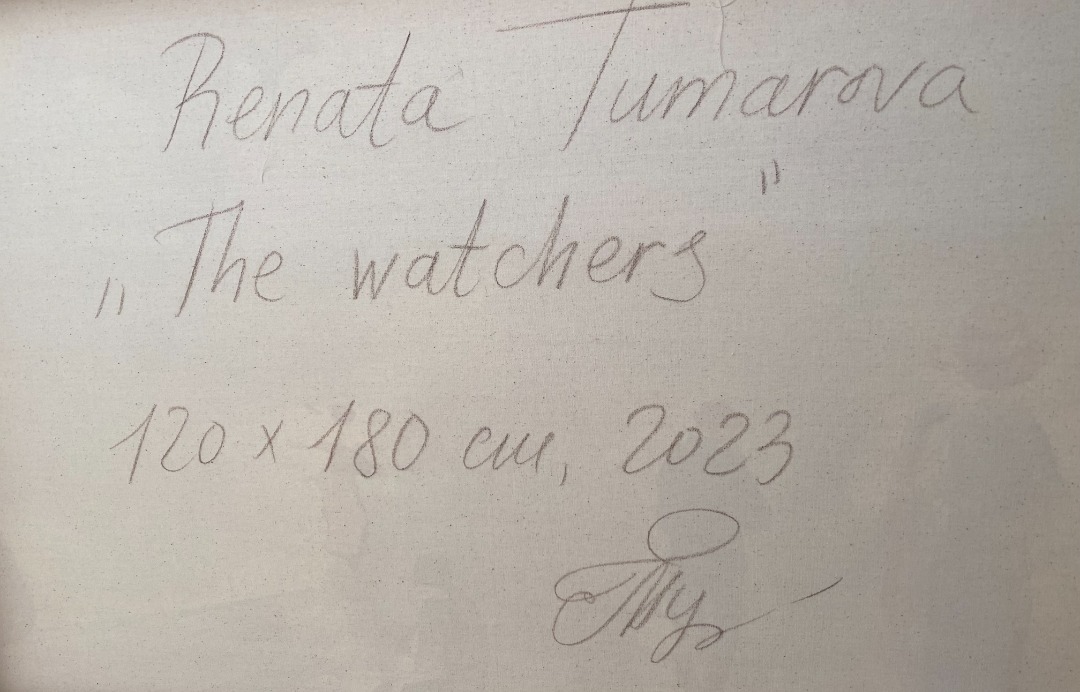 Renata Tumarova
„The watchers"
120 x 180 cm, 2023